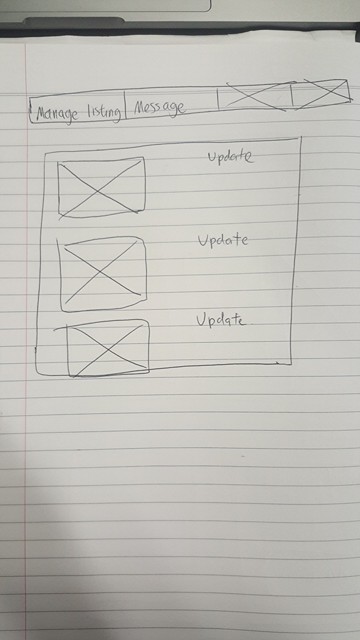 Manage listing Message
Update
Update
Update